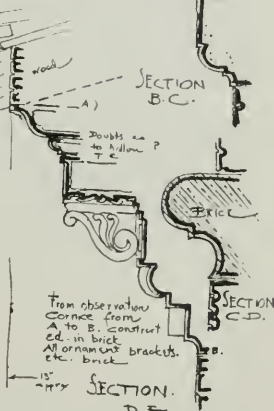 wood
SECTION
B.C.
A)
Doubts as
to hollow ?
T C
BRICK
From observation
Cornice from
A to B. construct
ed. in brick
All ornament brackets.
etc. brick
SECTION
C.D.
B.
13"
SECTION.
D.E.